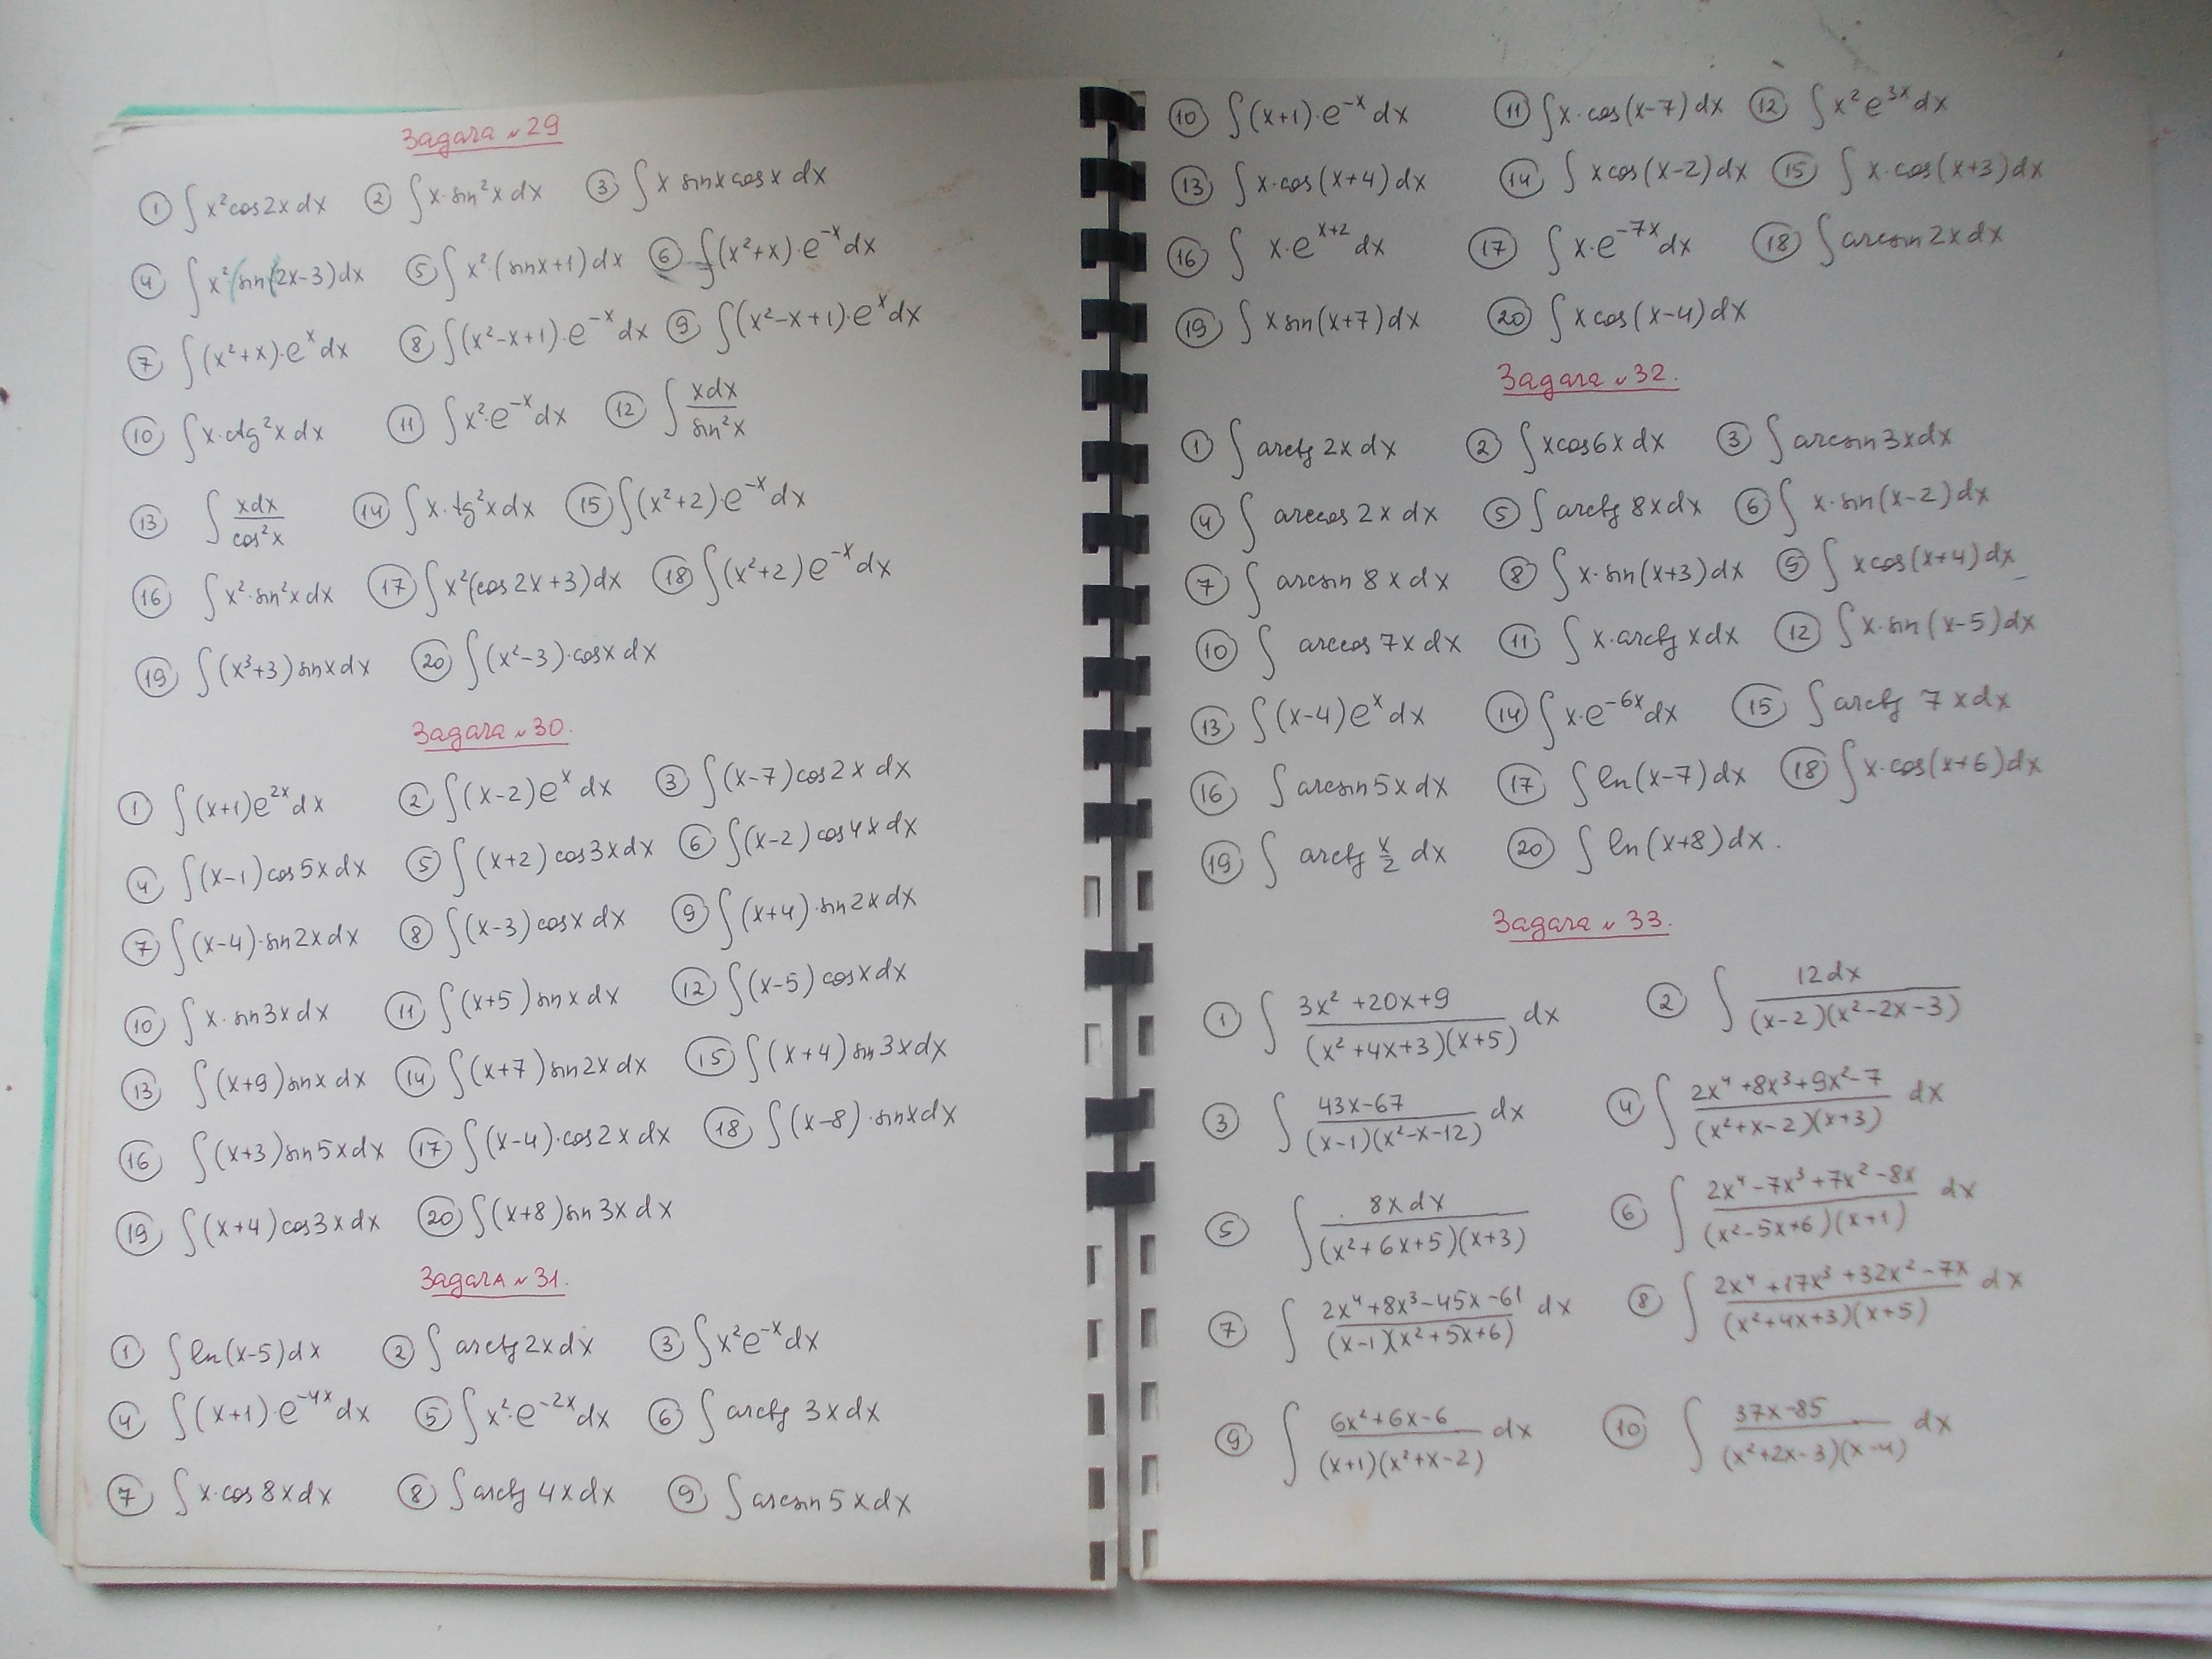 Задача №29
① ∫x²cos2xdx ② ∫x·sin²xdx ③ ∫x sinxcosx dx
④ ∫x²·sin(2x-3)dx ⑤ ∫x²·(sinx+1)dx ⑥ ∫(x²+x)·e⁻ˣdx
⑦ ∫(x²+x)·eˣdx ⑧ ∫(x²-x+1)·e⁻ˣdx ⑨ ∫(x²-x+1)·eˣdx
⑩ ∫x·ctg²xdx ⑪ ∫x²·e⁻ˣdx ⑫ ∫xdx/sin²x
⑬ ∫xdx/cos²x ⑭ ∫x·tg²xdx ⑮ ∫(x²+2)·e⁻ˣdx
⑯ ∫x²·sin²xdx ⑰ ∫x²(cos2x+3)dx ⑱ ∫(x²+2)e⁻ˣdx
⑲ ∫(x³+3)sinxdx ⑳ ∫(x²-3)·cosxdx
Задача №30.
① ∫(x+1)e²ˣdx ② ∫(x-2)eˣdx ③ ∫(x-7)cos2xdx
④ ∫(x-1)cos5xdx ⑤ ∫(x+2)cos3xdx ⑥ ∫(x-2)cos4xdx
⑦ ∫(x-4)·sin2xdx ⑧ ∫(x-3)cosxdx ⑨ ∫(x+4)·sin2xdx
⑩ ∫x·sin3xdx ⑪ ∫(x+5)sinxdx ⑫ ∫(x-5)cosxdx
⑬ ∫(x+9)sinxdx ⑭ ∫(x+7)sin2xdx ⑮ ∫(x+4)sin3xdx
⑯ ∫(x+3)sin5xdx ⑰ ∫(x-4)·cos2xdx ⑱ ∫(x-8)·sinxdx
⑲ ∫(x+4)cos3xdx ⑳ ∫(x+8)sin3xdx
ЗадачА №31.
① ∫ln(x-5)dx ② ∫arctg2xdx ③ ∫x²e⁻ˣdx
④ ∫(x+1)·e⁻⁴ˣdx ⑤ ∫x²·e⁻²ˣdx ⑥ ∫arctg 3xdx
⑦ ∫x·cos8xdx ⑧ ∫arctg4xdx ⑨ ∫arcsin5xdx
⑩ ∫(x+1)·e⁻ˣdx ⑪ ∫x·cos(x-7)dx ⑫ ∫x²e³ˣdx
⑬ ∫x·cos(x+4)dx ⑭ ∫xcos(x-2)dx ⑮ ∫x·cos(x+3)dx
⑯ ∫x·eˣ⁺²dx ⑰ ∫x·e⁻⁷ˣdx ⑱ ∫arcsin2xdx
⑲ ∫xsin(x+7)dx ⑳ ∫xcos(x-4)dx
Задача №32.
① ∫arctg2xdx ② ∫xcos6xdx ③ ∫arcsin3xdx
④ ∫arccos2xdx ⑤ ∫arctg8xdx ⑥ ∫x·sin(x-2)dx
⑦ ∫arcsin8xdx ⑧ ∫x·sin(x+3)dx ⑨ ∫xcos(x+4)dx
⑩ ∫arccos7xdx ⑪ ∫x·arctgxdx ⑫ ∫x·sin(x-5)dx
⑬ ∫(x-4)eˣdx ⑭ ∫x·e⁻⁶ˣdx ⑮ ∫arctg 7xdx
⑯ ∫arcsin5xdx ⑰ ∫ln(x-7)dx ⑱ ∫x·cos(x+6)dx
⑲ ∫arctg x/2 dx ⑳ ∫ln(x+8)dx.
Задача №33.
① ∫(3x²+20x+9)/((x²+4x+3)(x+5)) dx ② ∫12dx/((x-2)(x²-2x-3))
③ ∫(43x-67)/((x-1)(x²-x-12)) dx ④ ∫(2x⁴+8x³+9x²-7)/((x²+x-2)(x+3)) dx
⑤ ∫8xdx/((x²+6x+5)(x+3)) ⑥ ∫(2x⁴-7x³+7x²-8x)/((x²-5x+6)(x+1)) dx
⑦ ∫(2x⁴+8x³-45x-61)/((x-1)(x²+5x+6)) dx ⑧ ∫(2x⁴+17x³+32x²-7x)/((x²+4x+3)(x+5)) dx
⑨ ∫(6x²+6x-6)/((x+1)(x²+x-2)) dx ⑩ ∫(37x-85)/((x²+2x-3)(x-4)) dx